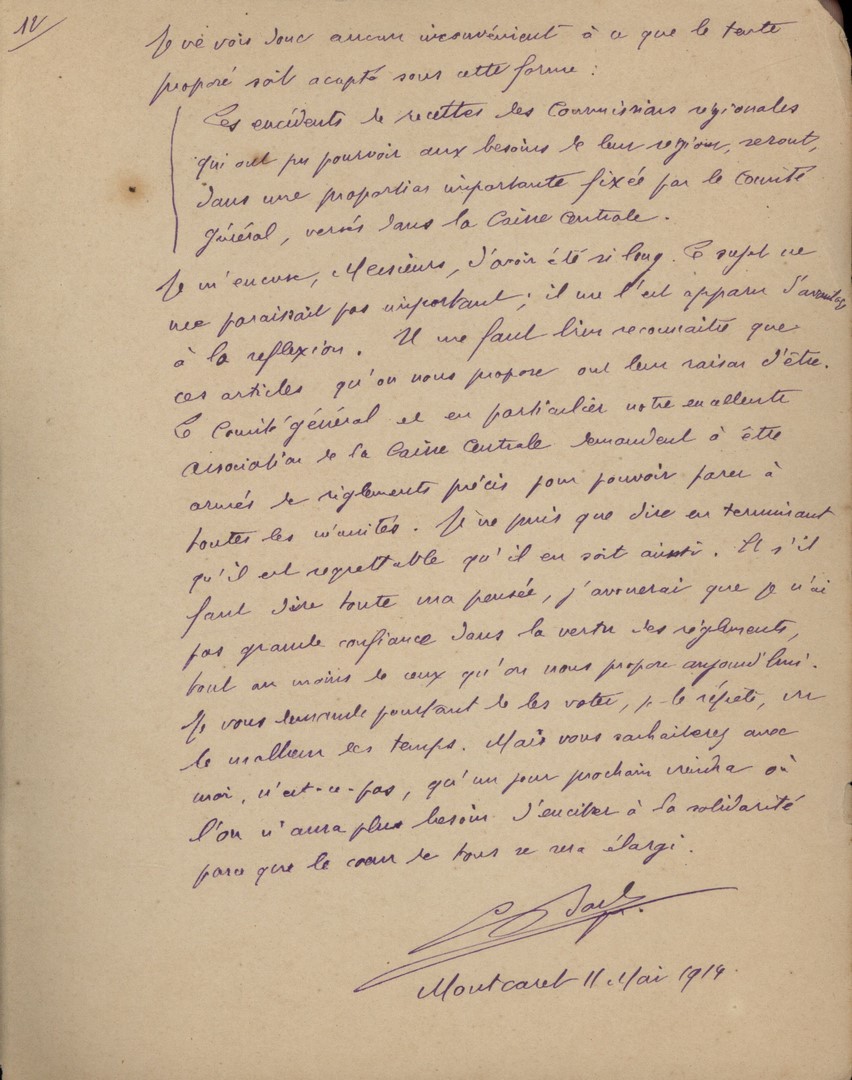 12/
Je ne vois donc aucun inconvénient à ce que le texte
proposé soit adopté sous cette forme :
Les excédents de recettes des Commissions régionales
qui ont pu pourvoir aux besoins de leur région, seront,
dans une proportion importante fixée par le Comité
général, versés dans la Caisse Centrale.
Je m'excuse, Messieurs, d'avoir été si long. Ce sujet ne
me paraissait pas important ; il ne l'est apparu davantage
à la réflexion. Il me faut bien reconnaitre que
ces articles qu'on nous propose ont leur raison d'être.
Le Comité général et en particulier notre excellente
association de la Caisse Centrale demandent à être
armés de règlements précis pour pouvoir parer à
toutes les nécessités. Je ne puis que dire en terminant
qu'il est regrettable qu'il en soit ainsi. Et s'il
faut dire toute ma pensée, j'avouerai que je n'ai
pas grande confiance dans la vertu des règlements,
tout au moins de ceux qu'on nous propose aujourd'hui.
Je vous demande pourtant de les voter, je le répète, vu
le malheur des temps. Mais vous souhaiterez avec
moi, n'est-ce-pas, qu'un jour prochain viendra où
l'on n'aura plus besoin d'exciter à la solidarité
parce que le cœur de tous se sera élargi.
Montcaret 11 Mai 1914